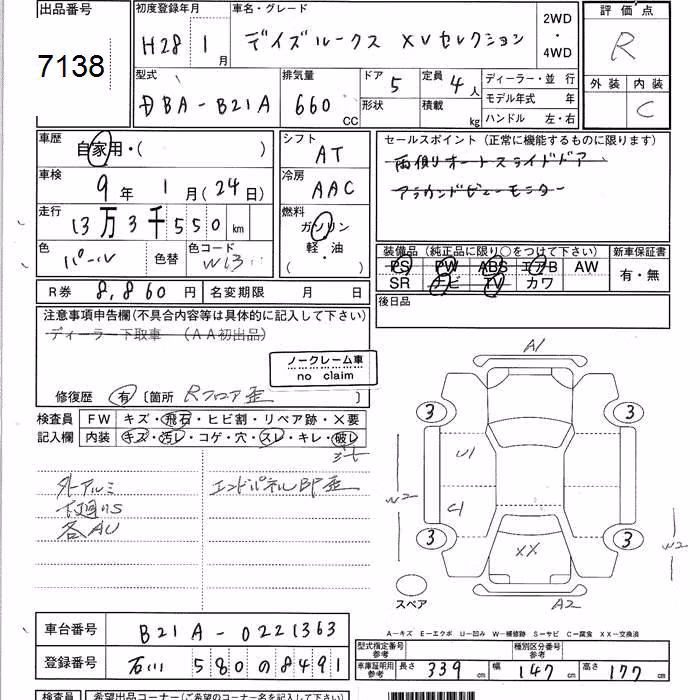 出品番号
7138
初度登録年月
H28 1月
車名・グレード
デイズルークス XVセレクション
2WD
・
4WD
評価点
R
外装 内装
C
型式
DBA-B21A
排気量
660 CC
ドア 5
形状
定員 4人
積載 kg
ディーラー・並行
モデル年式 年
ハンドル 左・右
車歴
自家用・( )
車検
9年 1月(24日)
走行
13万3千550km
色
パール
色替
色コード
シフト
AT
冷房
AAC
燃料
ガソリン
軽・油
( ・ )
セールスポイント(正常に機能するものに限ります)
両側オートスライドドア
アラウンドビューモニター
装備品(純正品に限り○をつけて下さい)
PS PW ABS エアB AW
SR ナビ TV カワ
新車保証書
有・無
後日品
R券 8,860円
名変期限 月 日
注意事項申告欄(不具合内容等は具体的に記入して下さい)
ディーラー下取車 (AA初出品)
ノークレーム車
no claim
修復歴 有 〔箇所 Rフロア歪 〕
検査員 FW キズ・飛石・ヒビ割・リペア跡・X要
記入欄 内装 キズ・汚レ・コゲ・穴・スレ・キレ・破レ
外アルミ
下廻りS
各AU
エンドパネルBP歪
A1
3
3
U1
C1
W2
W2
3
3
XX
A2
スペア
A-キズ E-エクボ U-凹み W-補修跡 S-サビ C-腐食 XX-交換済
車台番号 B21A-0221363
登録番号 石川 580 の 8491
型式指定番号
参考
種別区分番号
参考
車庫証明用
参考
長さ 339 cm 幅 147 cm 高さ 177 cm
検査員 希望出品コーナー(ご希望のコーナー名を記入下さい)